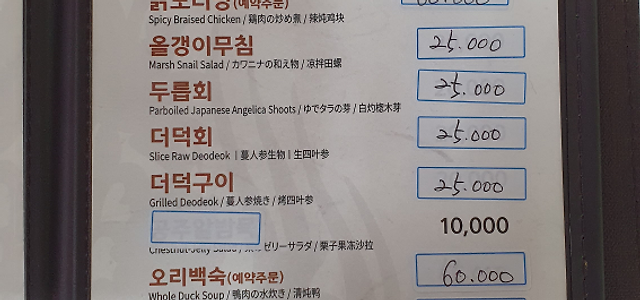 닭도리탕(예약주문)
Spicy Braised Chicken / 鶏肉の炒め煮 / 辣炖鸡块
올갱이무침 25.000
Marsh Snail Salad / カワニナの和え物 / 凉拌田螺
두릅회 25.000
Parboiled Japanese Angelica Shoots / ゆでタラの芽 / 白灼楤木芽
더덕회 25.000
Slice Raw Deodeok | 蔓人参生物 | 生四叶参
더덕구이 25.000
Grilled Deodeok / 蔓人参焼き / 烤四叶参
10,000
Chestnut-Jelly Salad / ゼリーサラダ / 栗子果冻沙拉
오리백숙(예약주문) 60.000
Whole Duck Soup / 鴨肉の水炊き / 清炖鸭